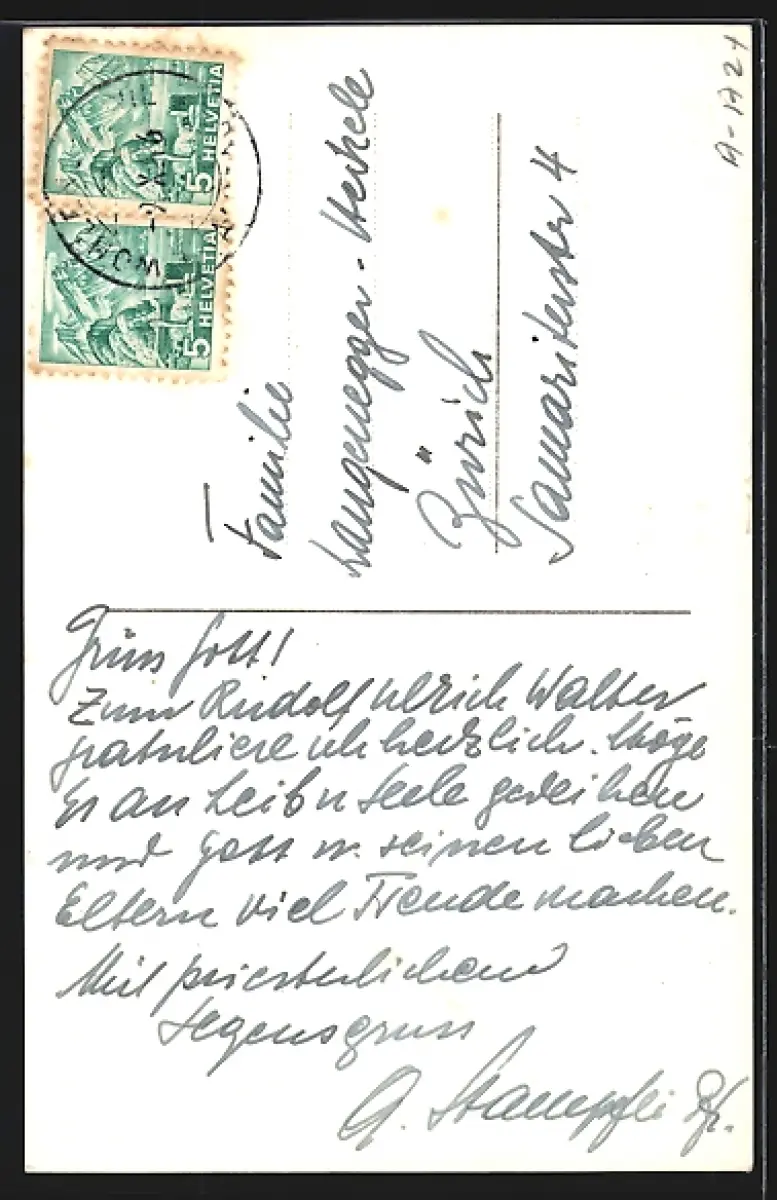 A-1721
5 HELVETIA
5 HELVETIA
Familie
Langenegger-
Zürich
Samariterstr 4
Grüss Gott!
Zum Rudolf Ulrich Walter
gratuliere ich herzlich. Möge
Er an Leib u Seele gedeihen
und Gott u. seinen lieben
Eltern viel Freude machen.
Mit priesterlichem
Segensgruss
A. Stampfli Pf.